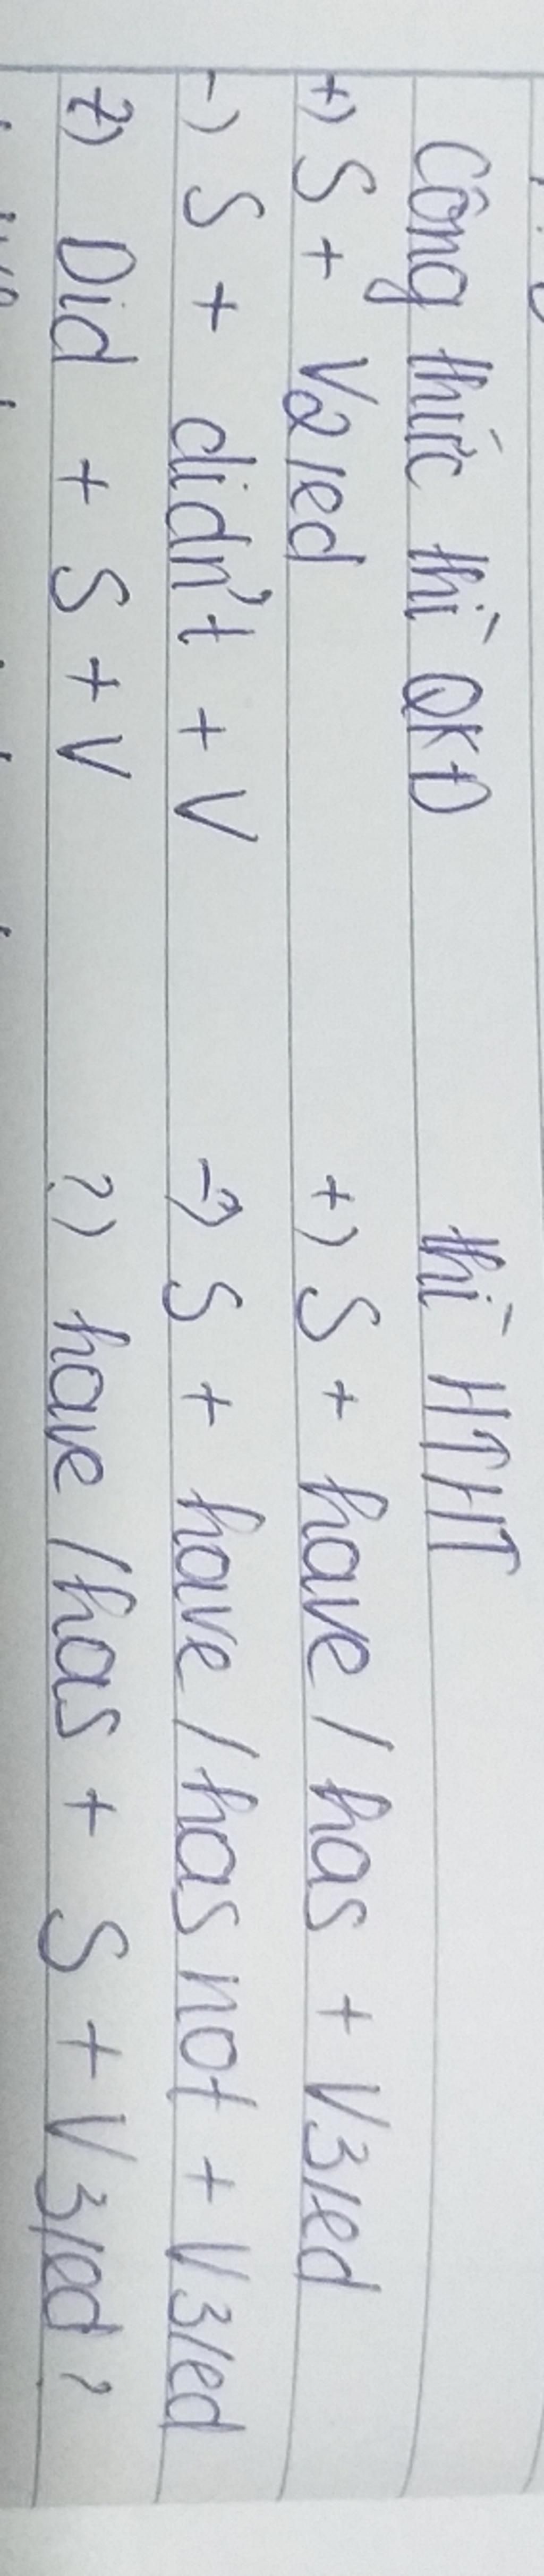 Công thức thì QKĐ thì HTHT
+) S + V2/ed +) S + have / has + V3/ed
-) S + didn't + V -) S + have / has not + V3/ed
?) Did + S + V ?) have / has + S + V3/ed ?